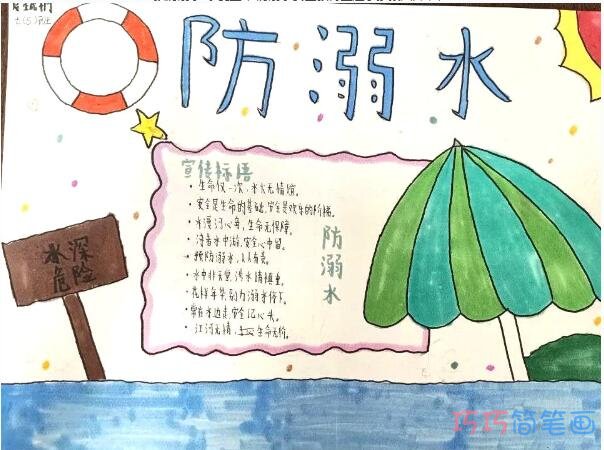 七(5)班
防溺水
宣传标语
· 生命仅一次,水火无情缘。
· 安全是生命的基础,安全是欢乐的阶梯。
· 水漫河心每,生命无保障。
· 湾若水中游,安全心中留。
· 预防溺水,人人有责。
· 水中非天堂,涉水请慎重。
· 花样年华,别为溺水停下。
· 常在水边走,安全记心头。
· 江河无情,生命无价。
防溺水
水深
危险
巧巧简笔画